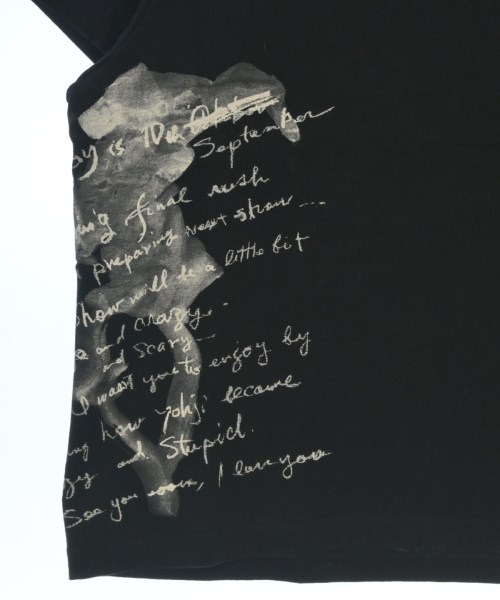 ay is 10th October
September
ing final rush
preparing next show ...
show will be a little bit
and crazy..
and scary...
I want you to enjoy by
ng how yohji became
zy and stupid.
See you soon, I love you